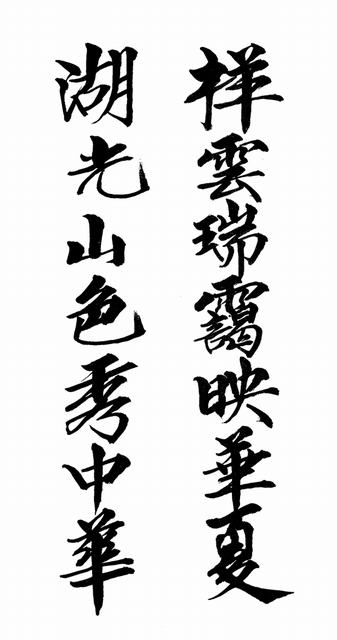 祥雲瑞靄映華夏
湖光山色秀中華